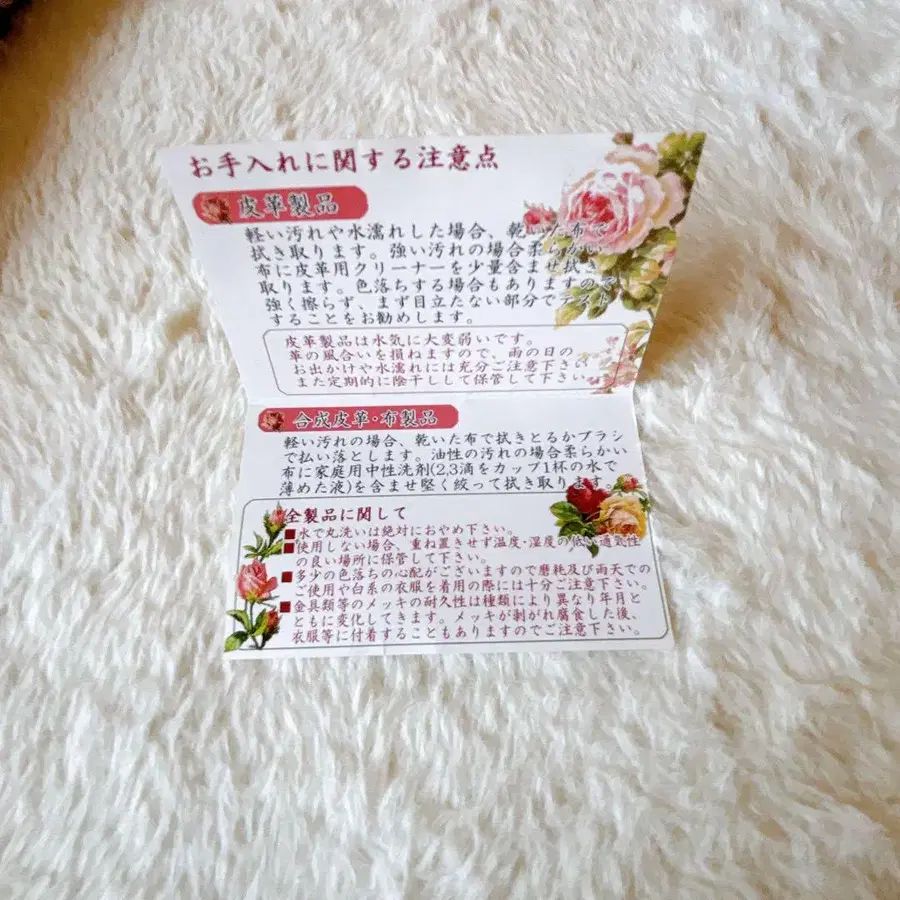 お手入れに関する注意点
皮革製品
軽い汚れや水濡れした場合、乾いた布で
拭き取ります。強い汚れの場合柔らかい
布に皮革用クリーナーを少量含ませ拭き
取ります。色落ちする場合もありますので
強く擦らず、まず目立たない部分でテスト
することをお勧めします。
皮革製品は水気に大変弱いです。
革の風合いを損ねますので、雨の日の
お出かけや水濡れには充分ご注意下さい
また定期的に陰干しして保管して下さい
合成皮革・布製品
軽い汚れの場合、乾いた布で拭きとるかブラシ
で払い落とします。油性の汚れの場合柔らかい
布に家庭用中性洗剤(2,3滴をカップ1杯の水で
薄めた液)を含ませ堅く絞って拭き取ります。
全製品に関して
■水で丸洗いは絶対におやめ下さい。
■使用しない場合、重ね置きせず温度・湿度の低い通気性
の良い場所に保管して下さい。
■多少の色落ちの心配がございますので磨耗及び雨天での
ご使用や白系の衣服を着用の際には十分ご注意下さい。
■金具類等のメッキの耐久性は種類により異なり年月と
ともに変化してきます。メッキが剥がれ腐食した後、
衣服等に付着することもありますのでご注意下さい。